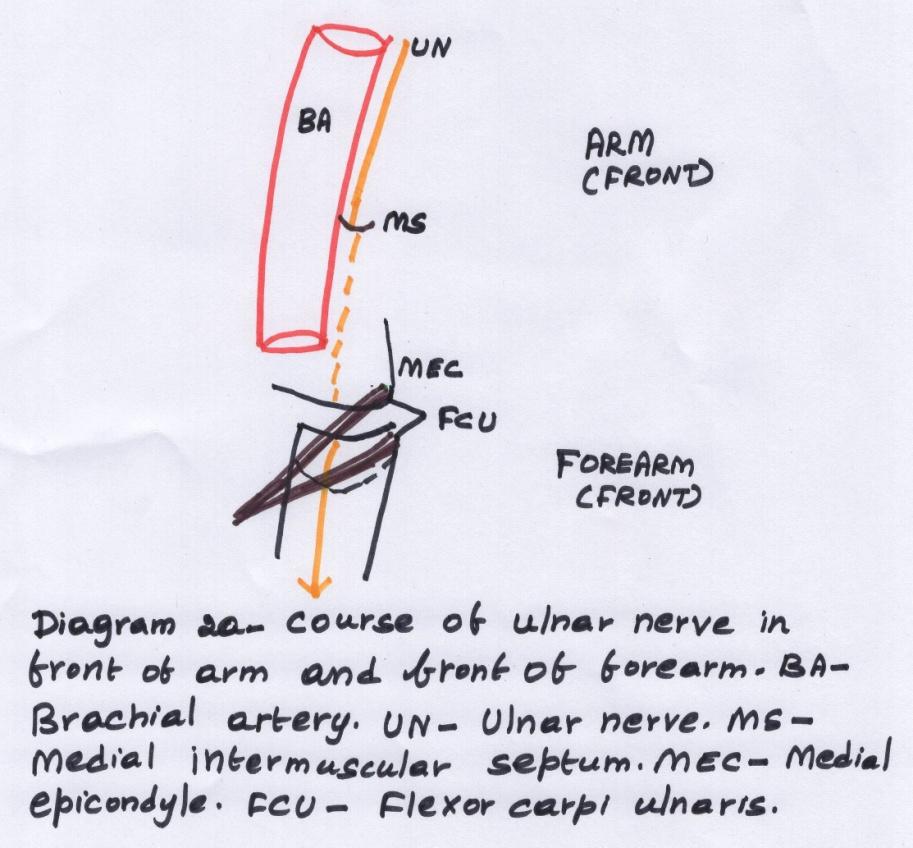 UN
BA
ARM
(FRONT)
MS
MEC
FCU
FOREARM
(FRONT)
Diagram 2a- course of ulnar nerve in
front of arm and front of forearm. BA-
Brachial artery. UN- Ulnar nerve. MS-
Medial intermuscular septum. MEC- Medial
epicondyle. FCU- Flexor carpi ulnaris.